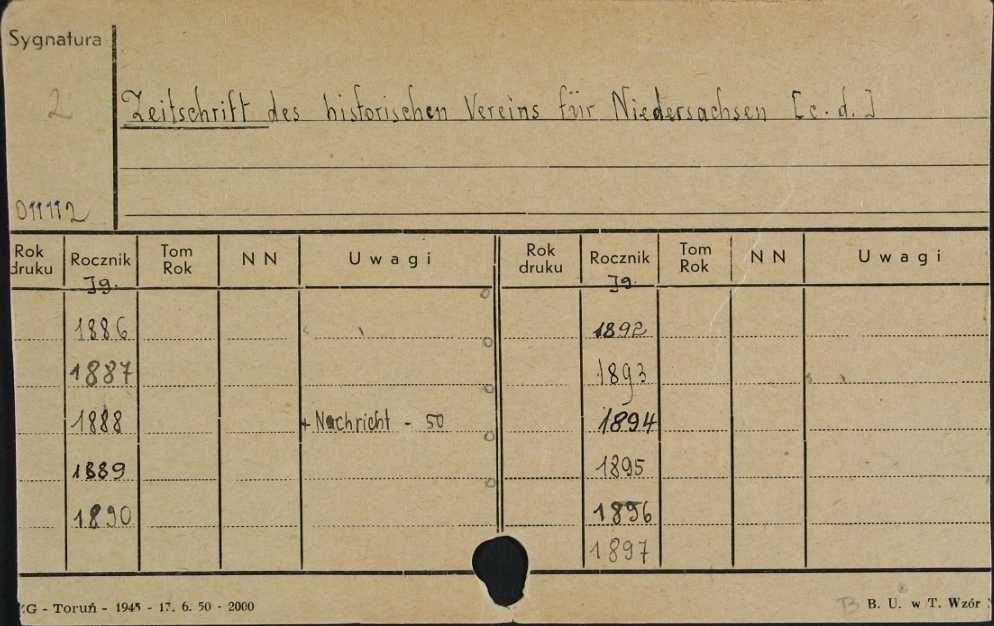 Sygnatura
2
Zeitschrift des historischen Vereins für Niedersachsen [c.d.]
011112
Rok druku Rocznik Tom Rok NN Uwagi Rok druku Rocznik Tom Rok NN Uwagi
Jg. Jg.
1886 1892
1887 1893
1888 + Nachricht - 50 1894
1889 1895
1890 1896
1897
ZG - Toruń - 1945 - 17. 6. 50 - 2000 B. U. w T. Wzór